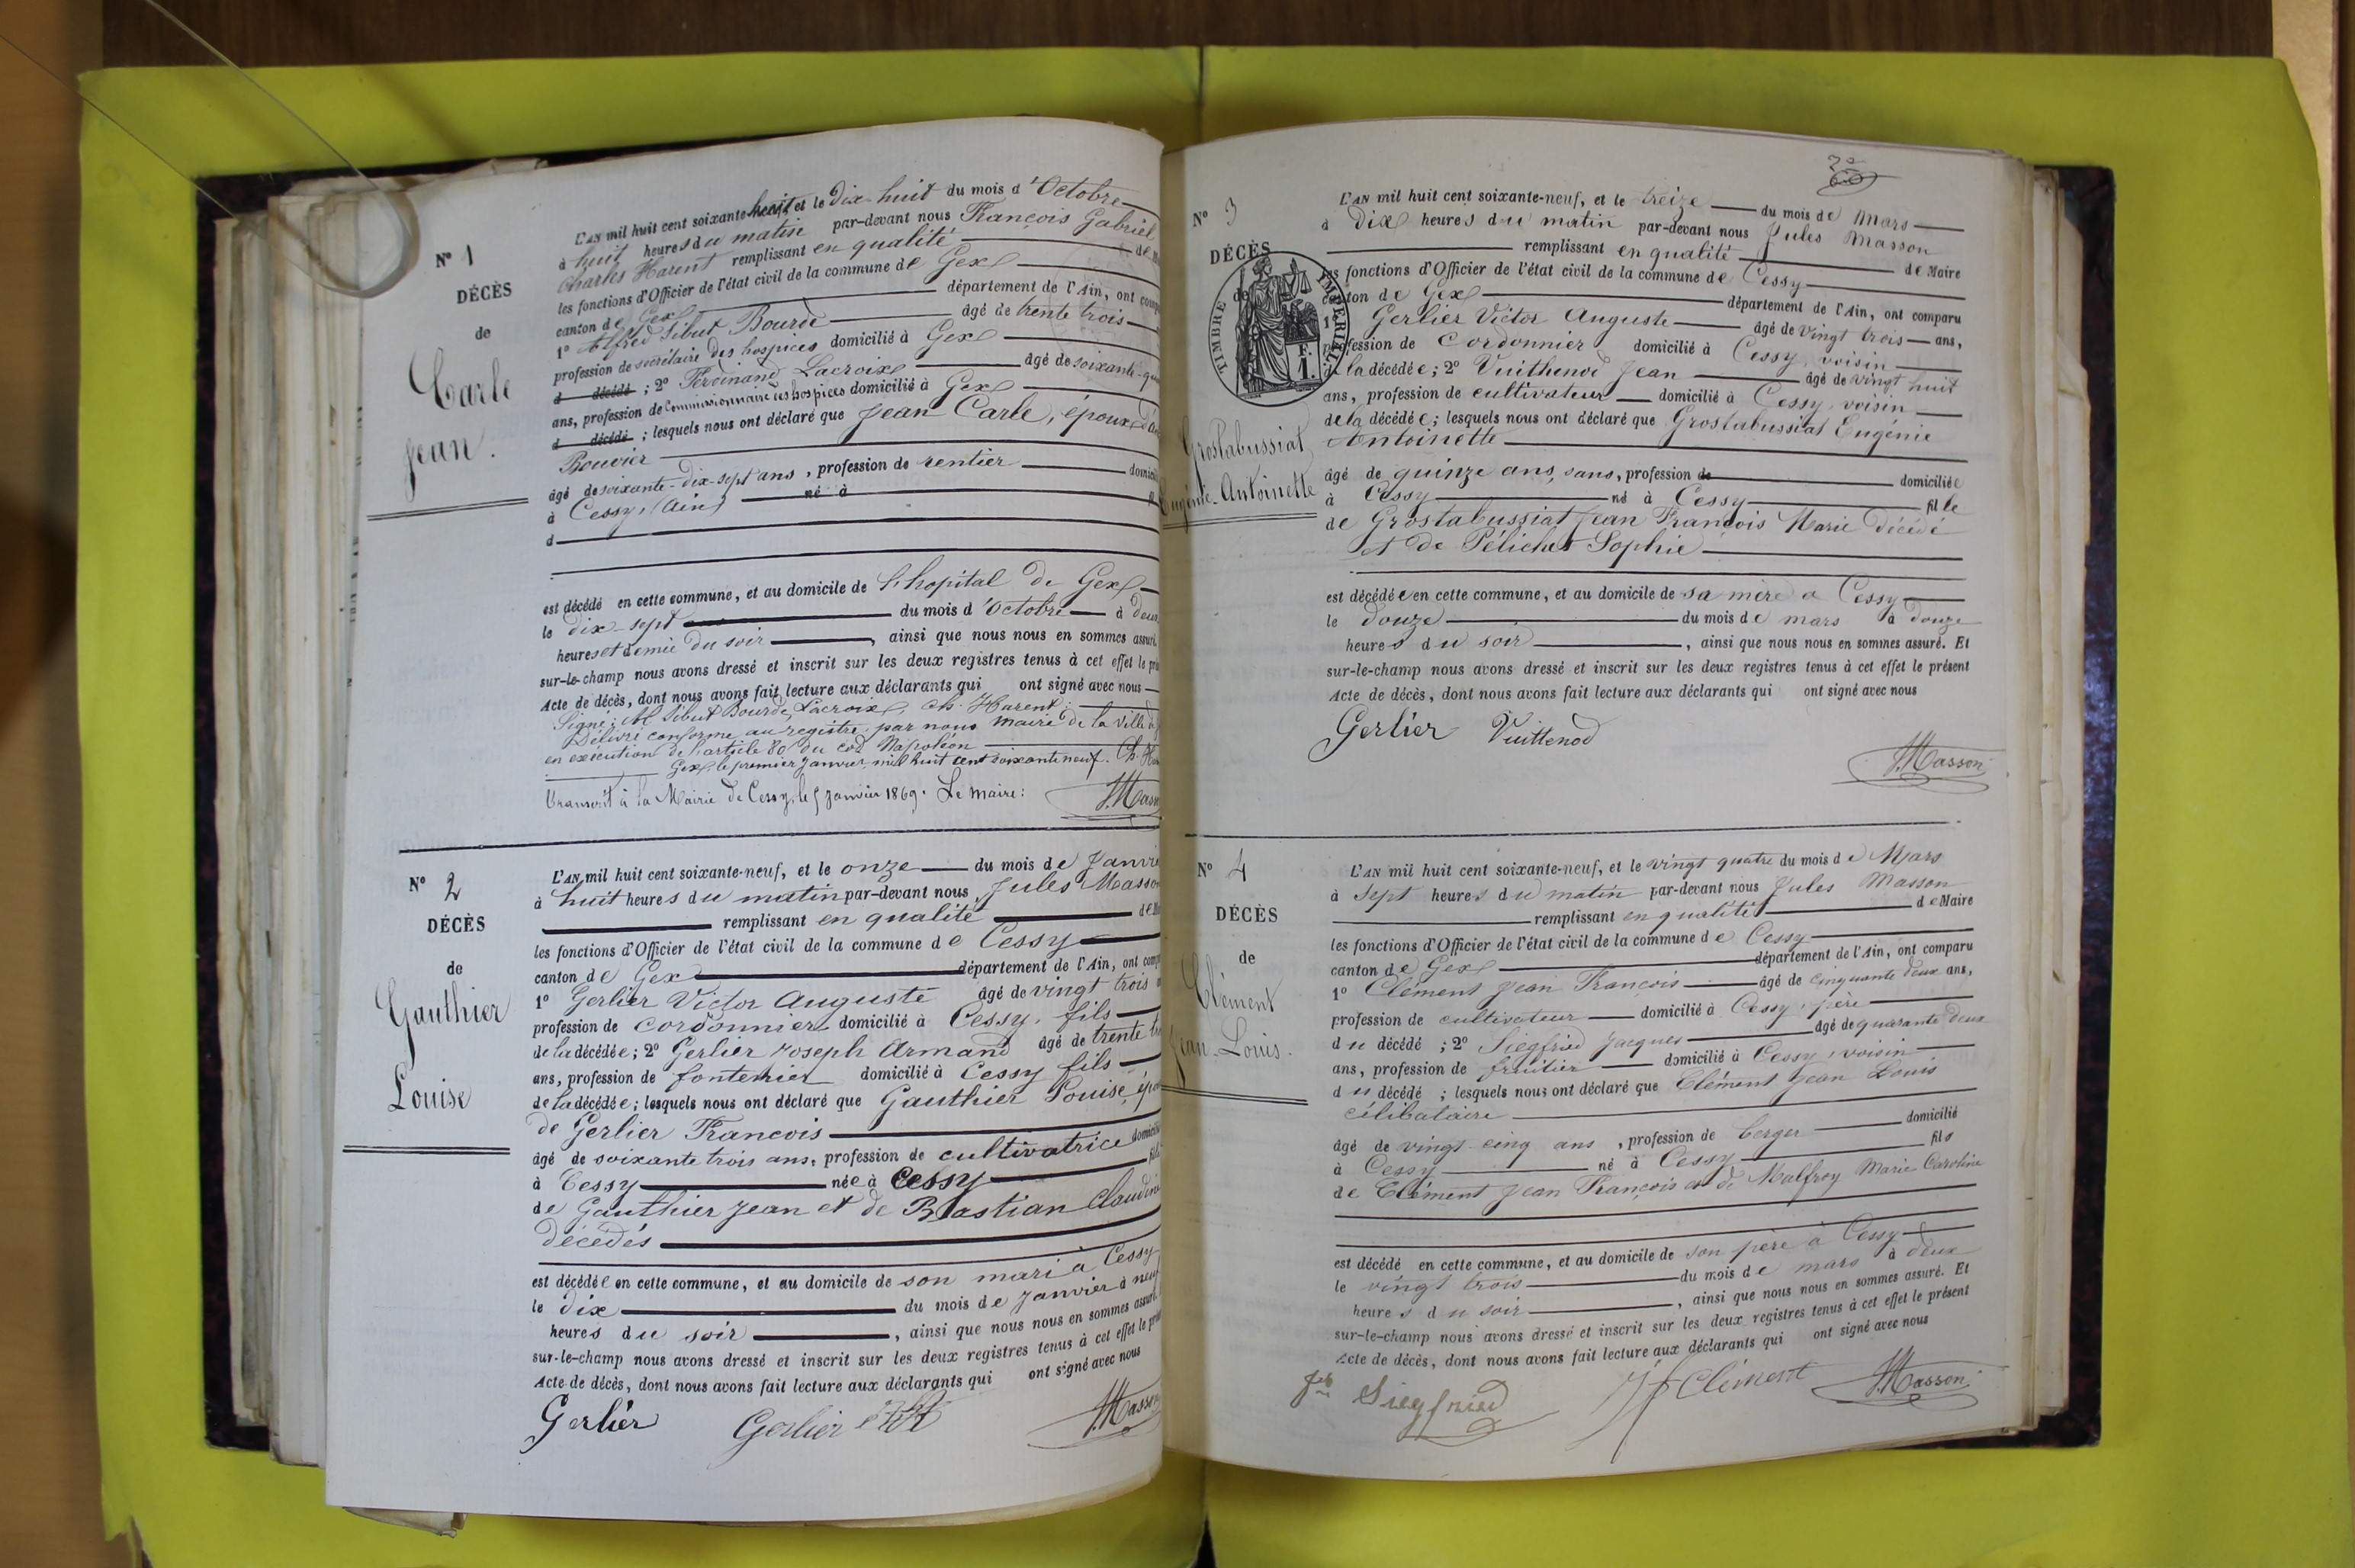 N° 1
DÉCÈS
de
Carle
Jean.
L'AN mil huit cent soixante-huit et le Dix-huit du mois d'Octobre
à huit heures du matin par-devant nous François Gabriel
Charles Harent remplissant en qualité de
les fonctions d'Officier de l'état civil de la commune de Gex
canton de Gex département de l'Ain, ont
1° Alfred Sibut Bourde âgé de trente trois
profession de secrétaire des hospices domicilié à Gex
d décédé ; 2° Ferdinand Lacroix âgé de soixante
ans, profession de Commissionnaire des hospices domicilié à Gex
d décédé ; lesquels nous ont déclaré que Jean Carle, époux
Bouvier
âgé de soixante-dix-sept ans, profession de rentier
à Cessy (Ain) né à
d
est décédé en cette commune, et au domicile de l'hopital de Gex
le dix-sept du mois d'Octobre à
heures et demie du soir, ainsi que nous nous en sommes assuré.
sur-le-champ nous avons dressé et inscrit sur les deux registres tenus à cet effet le
Acte de décès, dont nous avons fait lecture aux déclarants qui ont signé avec nous
Signé: Al Sibut Bourde, Lacroix, Ch. Harent.
Délivré conforme au registre, par nous maire de la ville de
en exécution de l'article 80 du cod Napoléon
Gex, le premier janvier mil huit cent soixante neuf. Ch.
Transcrit à la Mairie de Cessy, le 5 janvier 1869. Le maire:
J. Masson
N° 2
DÉCÈS
de
Gauthier
Louise
L'AN mil huit cent soixante-neuf, et le onze du mois de
à huit heures du matin par-devant nous Jules Masson
remplissant en qualité de
les fonctions d'Officier de l'état civil de la commune de Cessy
canton de Gex département de l'Ain, ont
1° Gerlier Victor Auguste âgé de vingt trois
profession de cordonnier domicilié à Cessy, fils
de la décédée; 2° Gerlier Joseph Armand âgé de trente
ans, profession de fontenier domicilié à Cessy fils
de la décédée; lesquels nous ont déclaré que Gauthier Louise,
de Gerlier François
âgé de soixante trois ans, profession de cultivatrice
à Cessy née à Cessy
de Gauthier Jean et de Bastian
décédés
est décédée en cette commune, et au domicile de son mari à Cessy
le dix du mois de janvier à neuf
heures du soir, ainsi que nous nous en sommes assuré.
sur-le-champ nous avons dressé et inscrit sur les deux registres tenus à cet effet le
Acte de décès, dont nous avons fait lecture aux déclarants qui ont signé avec nous
Gerlier Gerlier J. Masson
N° 3
DÉCÈS
de
TIMBRE IMPÉRIAL
F.
1.
Grostabussiat
Eugénie-Antoinette
L'AN mil huit cent soixante-neuf, et le treize du mois de Mars
à Dix heures du matin par-devant nous Jules Masson
remplissant en qualité de Maire
les fonctions d'Officier de l'état civil de la commune de Cessy
canton de Gex département de l'Ain, ont comparu
1° Gerlier Victor Auguste âgé de vingt trois ans,
profession de Cordonnier domicilié à Cessy, voisin
de la décédée; 2° Vuithenod Jean âgé de vingt huit
ans, profession de cultivateur domicilié à Cessy, voisin
de la décédée; lesquels nous ont déclaré que Grostabussiat Eugénie
Antoinette
âgé de quinze ans, sans, profession de domiciliée
à Cessy né à Cessy fille
de Grostabussiat Jean François Marie décédé
et de Pélichet Sophie
est décédée en cette commune, et au domicile de sa mère à Cessy
le douze du mois de mars à douze
heures du soir, ainsi que nous nous en sommes assuré. Et
sur-le-champ nous avons dressé et inscrit sur les deux registres tenus à cet effet le présent
Acte de décès, dont nous avons fait lecture aux déclarants qui ont signé avec nous
Gerlier Vuittenod
J. Masson
N° 4
DÉCÈS
de
Clément
Jean-Louis.
L'AN mil huit cent soixante-neuf, et le vingt quatre du mois de Mars
à Sept heures du matin par-devant nous Jules Masson
remplissant en qualité de Maire
les fonctions d'Officier de l'état civil de la commune de Cessy
canton de Gex département de l'Ain, ont comparu
1° Clément Jean François âgé de cinquante deux ans,
profession de cultivateur domicilié à Cessy, père
du décédé ; 2° Siegfried Jacques âgé de quarante deux
ans, profession de fruitier domicilié à Cessy, voisin
du décédé ; lesquels nous ont déclaré que Clément Jean Louis
célibataire
âgé de vingt-cinq ans, profession de berger domicilié
à Cessy né à Cessy fils
de Clément Jean François et de Malfroy Marie Caroline
est décédé en cette commune, et au domicile de son père à Cessy
le vingt trois du mois de mars à deux
heures du soir, ainsi que nous nous en sommes assuré. Et
sur-le-champ nous avons dressé et inscrit sur les deux registres tenus à cet effet le présent
Acte de décès, dont nous avons fait lecture aux déclarants qui ont signé avec nous
Siegfried Jf Clément J. Masson